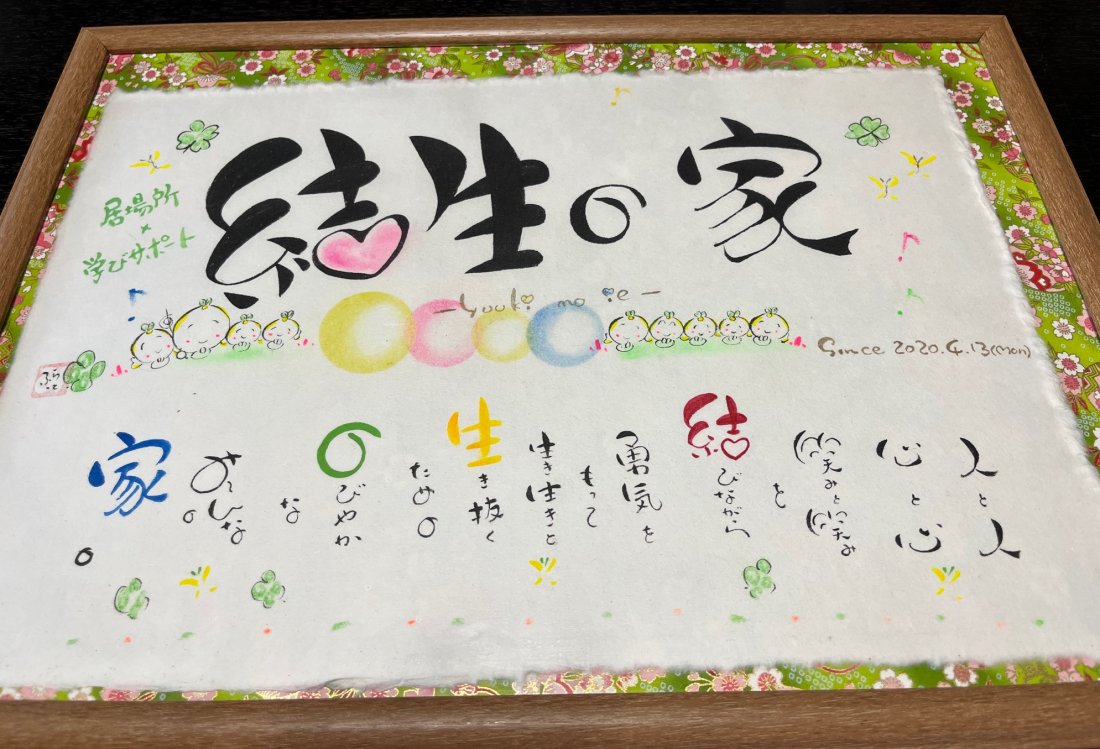 結生の家
居場所
×
学びサポート
-Yuuki no ie-
Since 2020.4.13(Mon)
人と人
心と心
笑みと笑み
を
結びながら
勇気を
もって
生き生きと
生き抜く
ための
のびやか
な
みんなの
家。